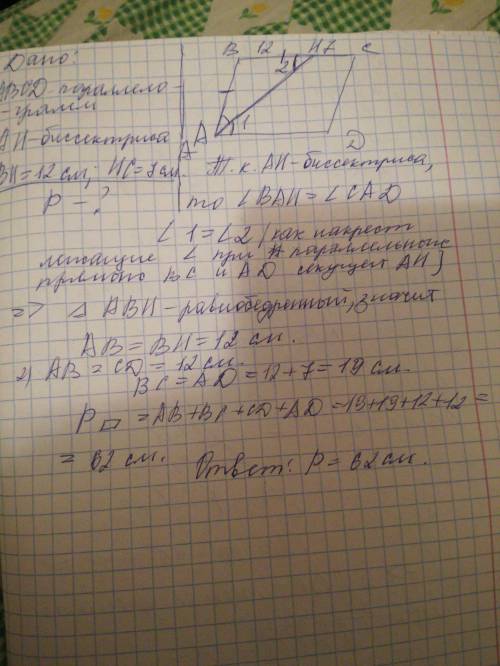 Дано:
ABCD параллело-
-грамм
AH-биссектриса
BH=12 см; HC=7 см.
P - ?
B 12 H 7 C
2
A 1
D
Т. к. AH-биссектриса,
то ∠BAH=∠CAD
∠1=∠2 (как накрест
лежащие ∠ при параллельных
прямых BC и AD секущей AH)
=> △ ABH-равнобедренный, значит
AB=BH=12 см.
2) AB=CD=12 см.
BC=AD=12+7=19 см.
P▱=AB+BC+CD+AD=19+19+12+12=
=62 см. Ответ: P=62 см.